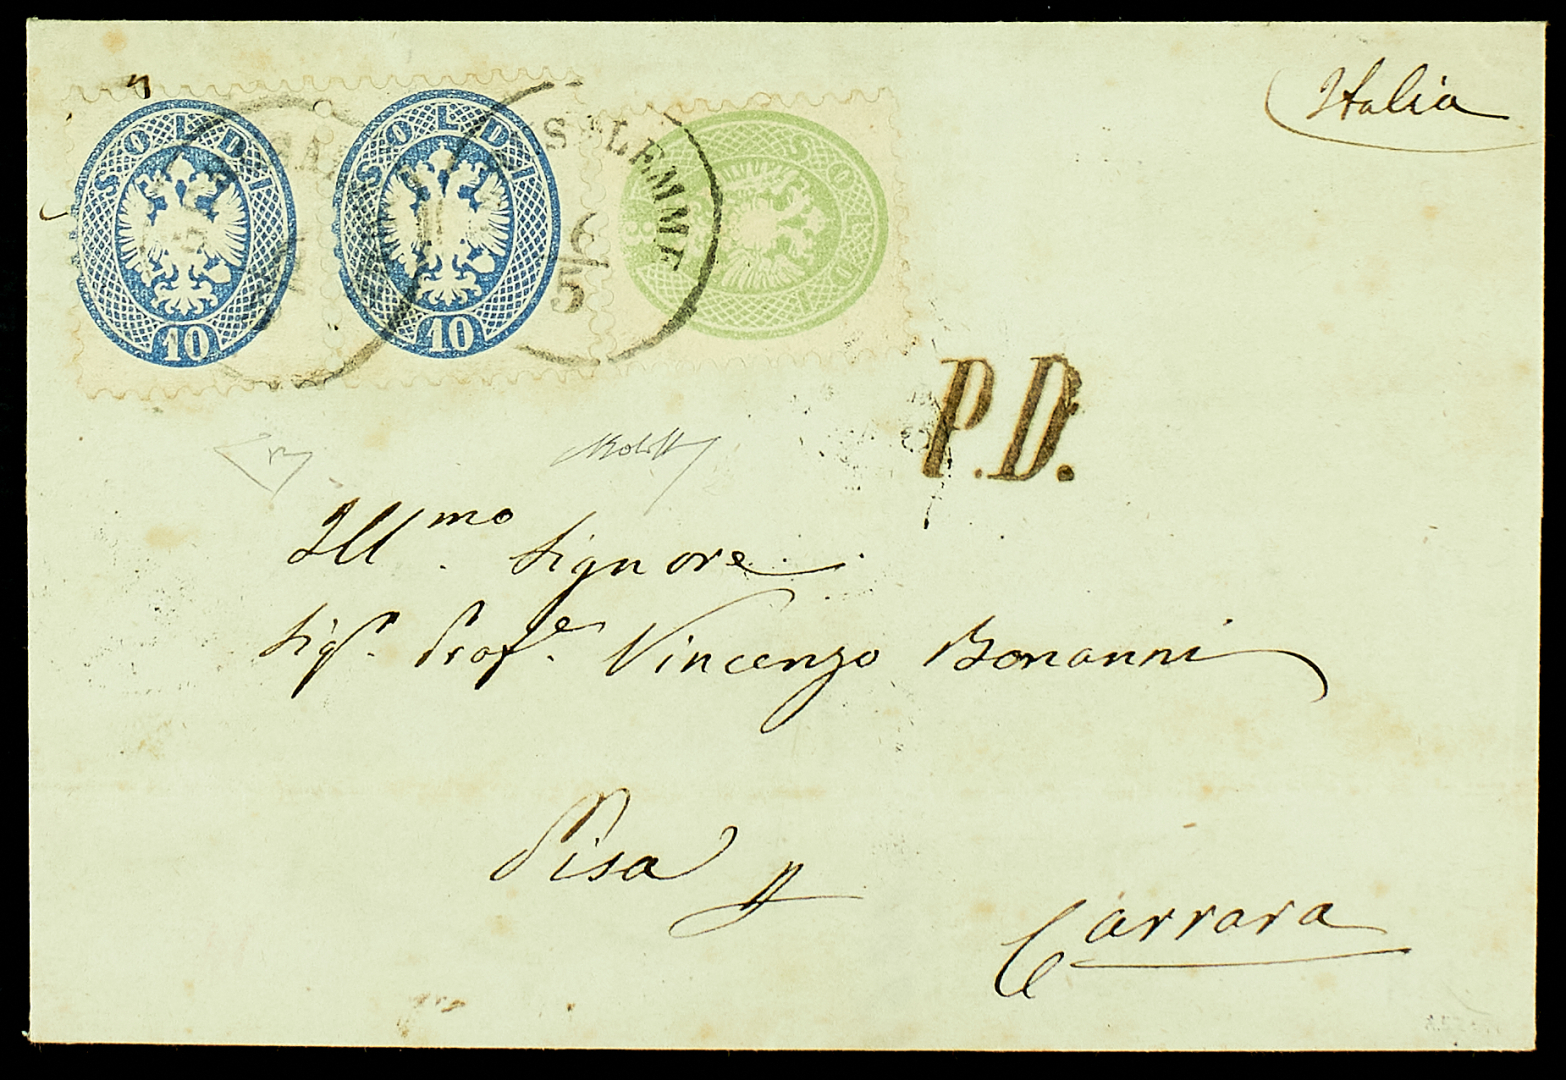 Italia
SOLDI
10
SOLDI
10
SOLDI
GERUSALEMME
6/5
P.D.
Ill.mo Signore
Sigr. Profe. Vincenzo Bonanni
Pisa p
Carrara